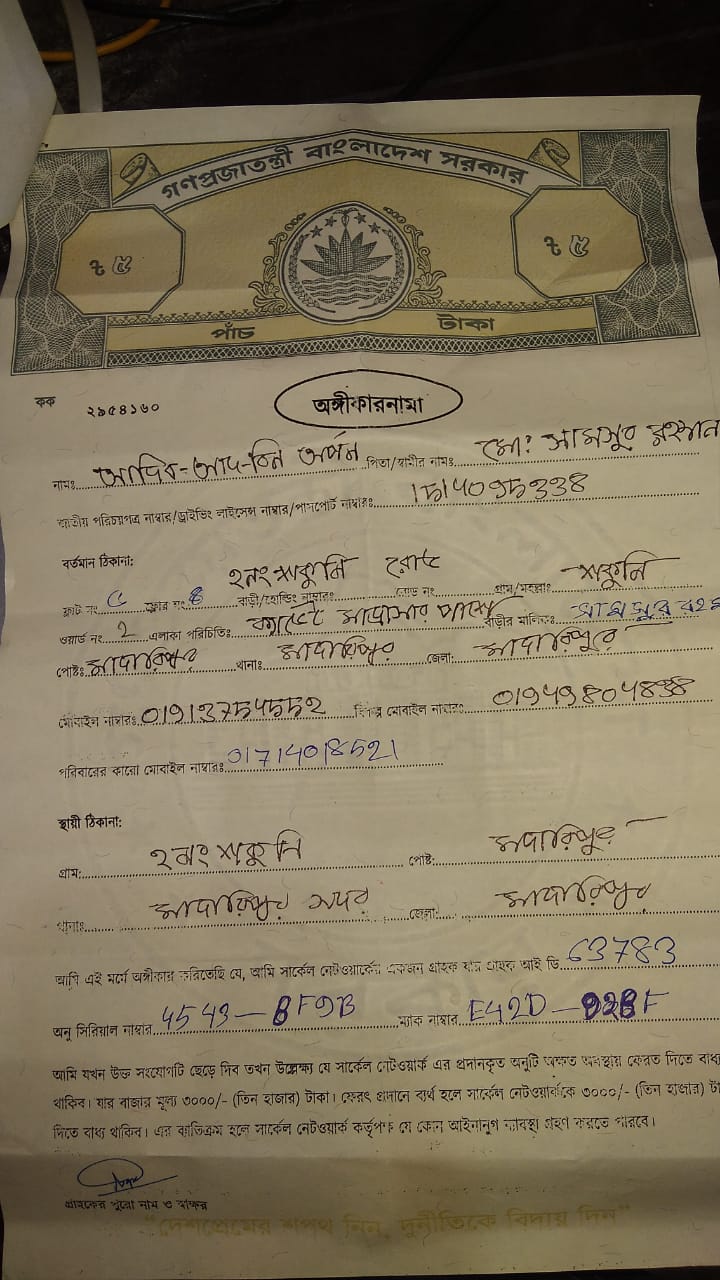 গণপ্রজাতন্ত্রী বাংলাদেশ সরকার
৳ ৫ ৳ ৫
পাঁচ টাকা
কক ২৯৫৪১৬০
অঙ্গীকারনামা
নামঃ আদিব-আদ-বিন অর্পন পিতা/স্বামীর নামঃ মোঃ সামসুর রহমান
জাতীয় পরিচয়পত্র নাম্বার/ড্রাইভিং লাইসেন্স নাম্বার/পাসপোর্ট নাম্বারঃ 1514095338
বর্তমান ঠিকানা:
ফ্লাট নং ফ্লোর নং বাড়ী/হোল্ডিং নাম্বারঃ ২নং শকুনি রোড রোড নং গ্রাম/মহল্লাঃ শকুনি
ওয়ার্ড নং 2 এলাকা পরিচিতিঃ মাদ্রাসার পাশে বাড়ীর মালিকঃ সামসুর রহমা
পোষ্টঃ মাদারিপুর থানাঃ মাদারিপুর জেলা: মাদারিপুর
মোবাইল নাম্বারঃ 01913754552 বিকল্প মোবাইল নাম্বারঃ 01949804838
পরিবারের কারো মোবাইল নাম্বারঃ 01714018521
স্থায়ী ঠিকানা:
গ্রাম: ২নং শকুনি পোষ্ট: মাদারিপুর
থানাঃ মাদারিপুর সদর জেলা: মাদারিপুর
আমি এই মর্মে অঙ্গীকার করিতেছি যে, আমি সার্কেল নেটওয়ার্কের একজন গ্রাহক যার গ্রাহক আই ডি 63783
অনু সিরিয়াল নাম্বার 4543-8F9B ম্যাক নাম্বার E42D-
আমি যখন উক্ত সংযোগটি ছেড়ে দিব তখন উল্লেখ্য যে সার্কেল নেটওয়ার্ক এর প্রদানকৃত অনুটি অক্ষত অবস্থায় ফেরত দিতে বাধ্য
থাকিব। যার বাজার মূল্য ৩০০০/- (তিন হাজার) টাকা। ফেরৎ প্রদানে ব্যর্থ হলে সার্কেল নেটওয়ার্ককে ৩০০০/- (তিন হাজার) টা
দিতে বাধ্য থাকিব। এর ব্যতিক্রম হলে সার্কেল নেটওয়ার্ক কর্তৃপক্ষ যে কোন আইনানুগ ব্যবস্থা গ্রহণ করতে পারবে।
গ্রাহকের পুরো নাম ও স্বাক্ষর
"দেশপ্রেমের শপথ নিন, দুর্নীতিকে বিদায় দিন"